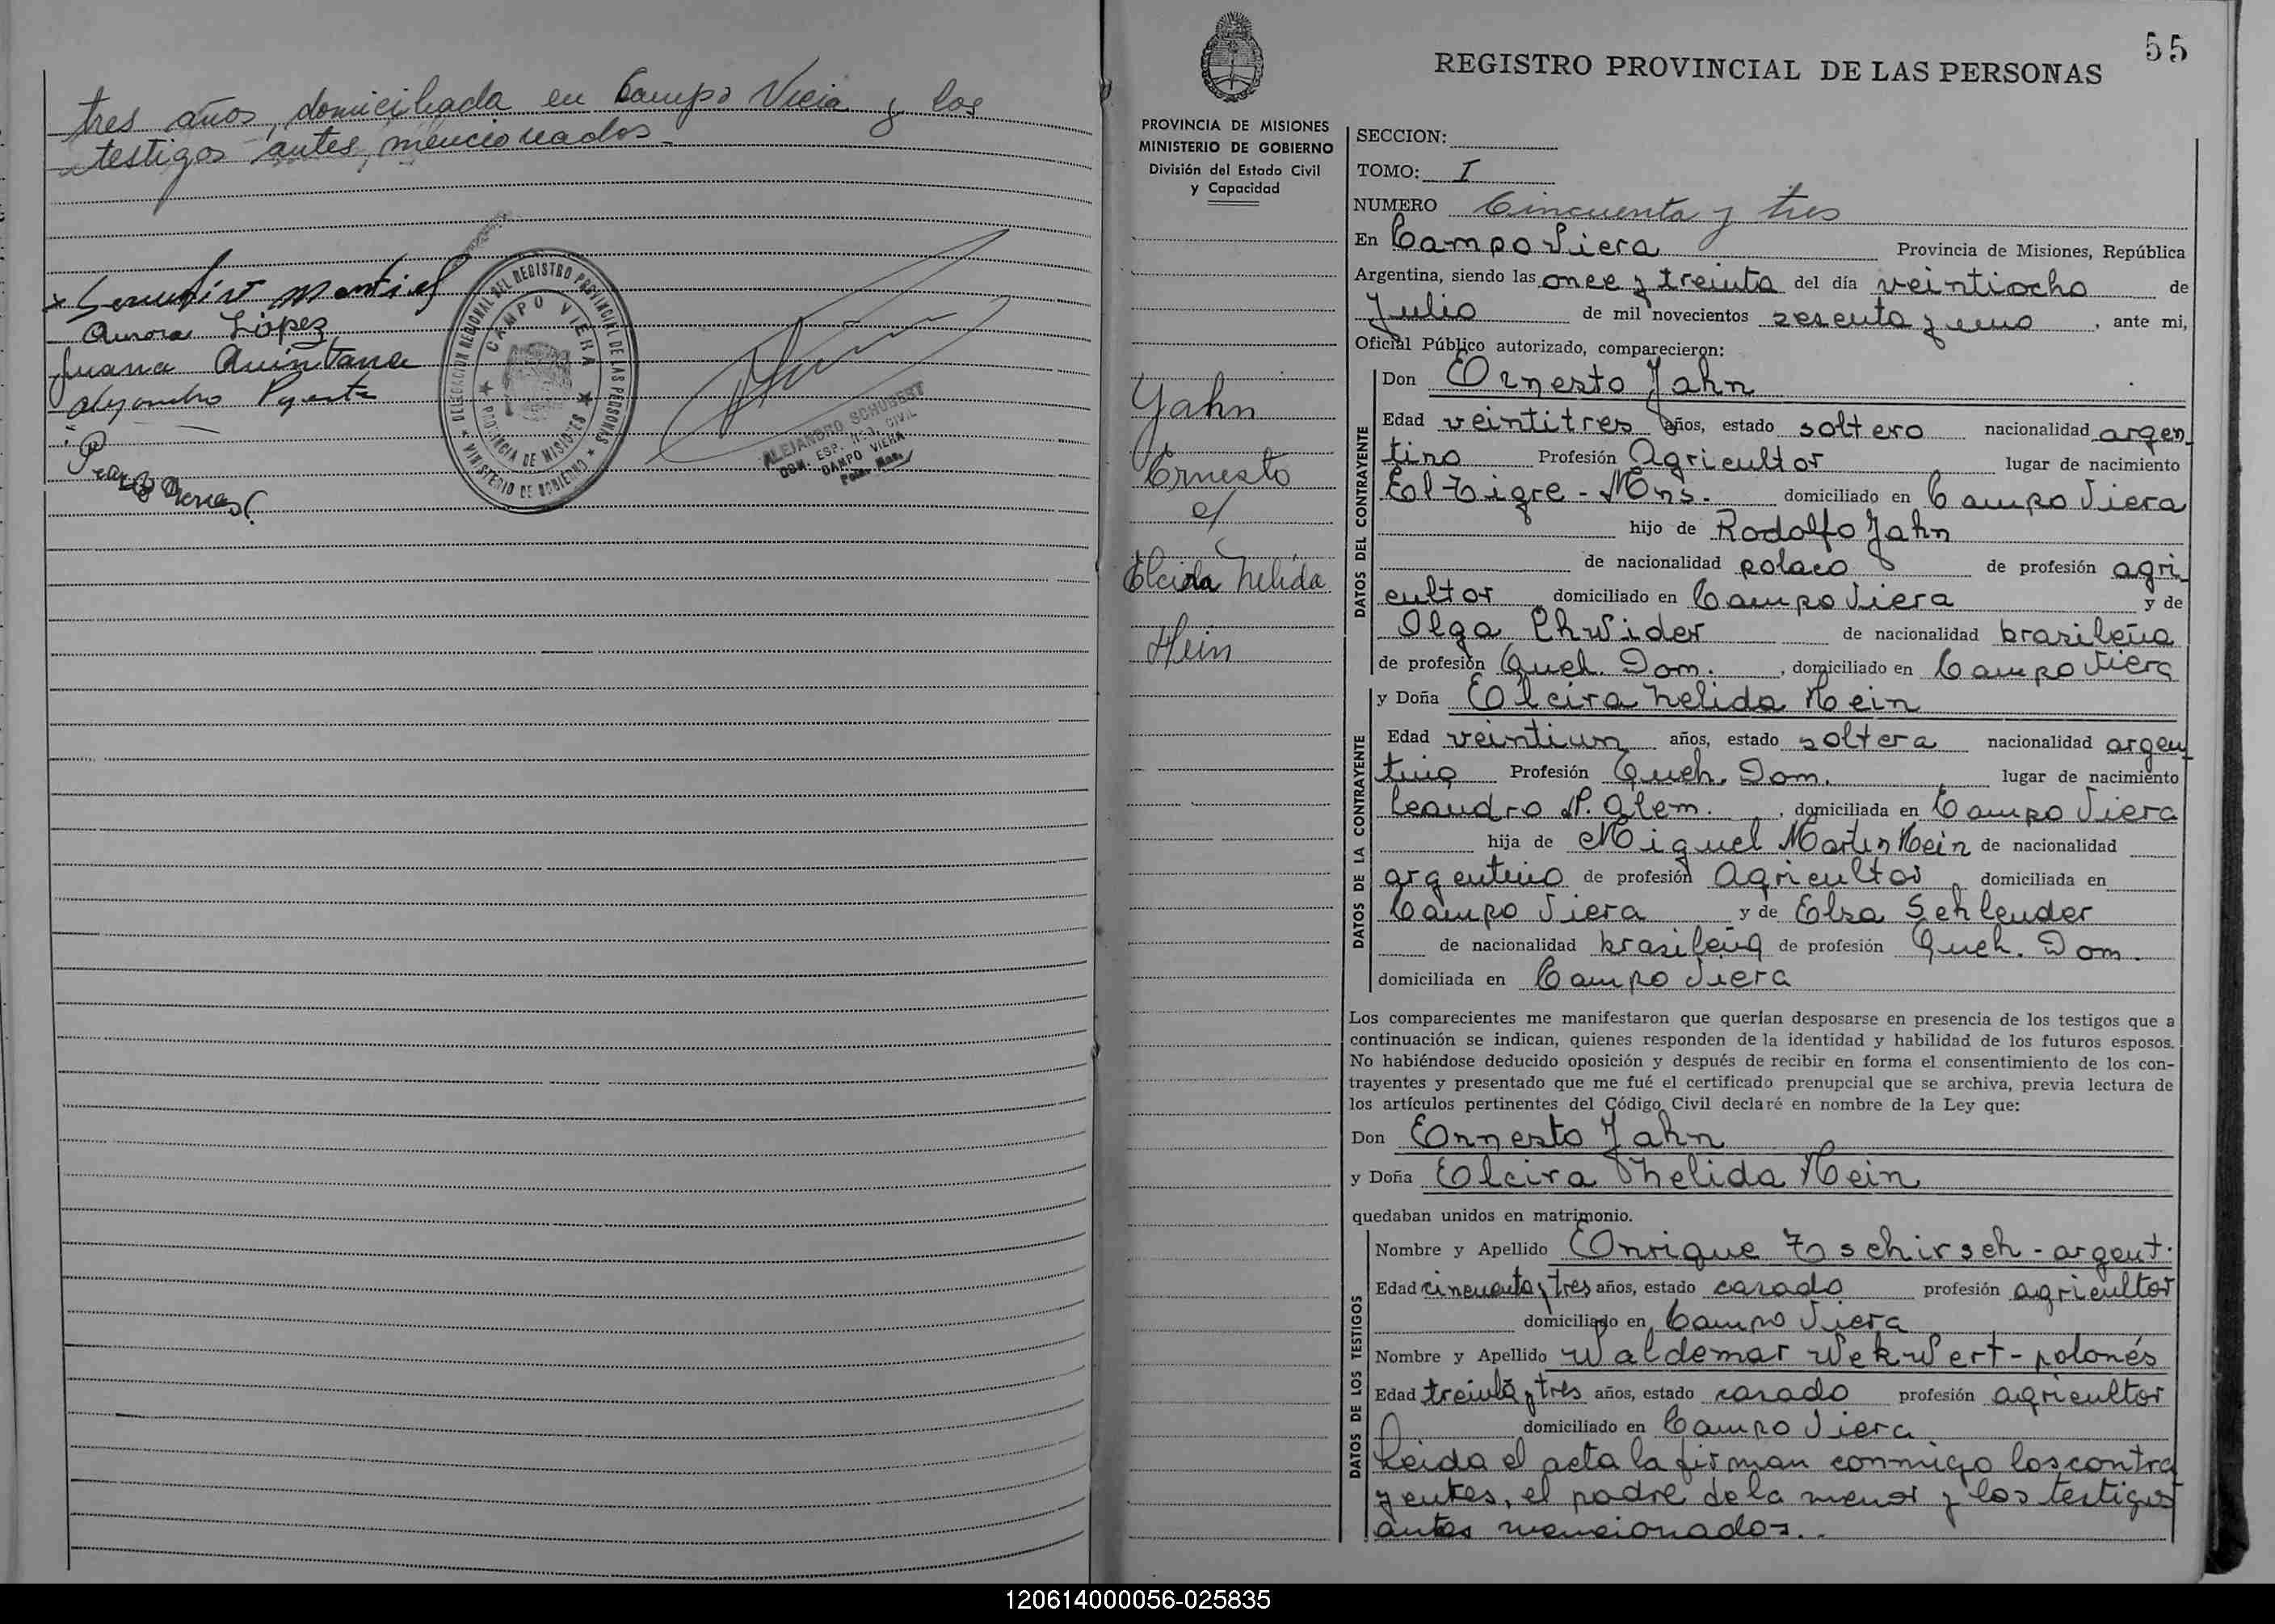 tres años, domiciliada en Campo Viera y los
testigos antes mencionados.
Aurora López
Juana Quintana
DELEGACION REGIONAL DEL REGISTRO PROVINCIAL DE LAS PERSONAS
CAMPO VIERA
PROVINCIA DE MISIONES
MINISTERIO DE GOBIERNO
ALEJANDRO SCHUBERT
CAMPO VIERA
55
REGISTRO PROVINCIAL DE LAS PERSONAS
PROVINCIA DE MISIONES
MINISTERIO DE GOBIERNO
División del Estado Civil
y Capacidad
Jahn
Ernesto
c/
Elcira Nelida
Hein
SECCION:
TOMO: I
NUMERO Cincuenta y tres
En Campo Viera Provincia de Misiones, República
Argentina, siendo las once y treinta del día veintiocho de
Julio de mil novecientos sesenta y uno, ante mi,
Oficial Público autorizado, comparecieron:
DATOS DEL CONTRAYENTE
Don Ernesto Jahn
Edad veintitres años, estado soltero nacionalidad argen
tino Profesión Agricultor lugar de nacimiento
El Tigre - Mns. domiciliado en Campo Viera
hijo de Rodolfo Jahn
de nacionalidad polaco de profesión agri
cultor domiciliado en Campo Viera y de
Olga Chwider de nacionalidad brasileña
de profesión Queh. Dom., domiciliado en Campo Viera
DATOS DE LA CONTRAYENTE
y Doña Elcira Nelida Hein
Edad veintiun años, estado soltera nacionalidad argen
tina Profesión Queh. Dom. lugar de nacimiento
Leandro N. Alem., domiciliada en Campo Viera
hija de Miguel Martin Hein de nacionalidad
argentino de profesión Agricultor domiciliada en
Campo Viera y de Elsa Schlender
de nacionalidad brasileña de profesión Queh. Dom.
domiciliada en Campo Viera
Los comparecientes me manifestaron que querían desposarse en presencia de los testigos que a
continuación se indican, quienes responden de la identidad y habilidad de los futuros esposos.
No habiéndose deducido oposición y después de recibir en forma el consentimiento de los con-
trayentes y presentado que me fué el certificado prenupcial que se archiva, previa lectura de
los artículos pertinentes del Código Civil declaré en nombre de la Ley que:
Don Ernesto Jahn
y Doña Elcira Nelida Hein
quedaban unidos en matrimonio.
DATOS DE LOS TESTIGOS
Nombre y Apellido Enrique Tschirsch - argent.
Edad cincuenta y tres años, estado casado profesión agricultor
domiciliado en Campo Viera
Nombre y Apellido Waldemar Wekwert - polonés
Edad treinta y tres años, estado casado profesión agricultor
domiciliado en Campo Viera
Leida el acta la firman conmigo los contra
yentes, el padre de la menor y los testigos
antes mencionados.
120614000056-025835